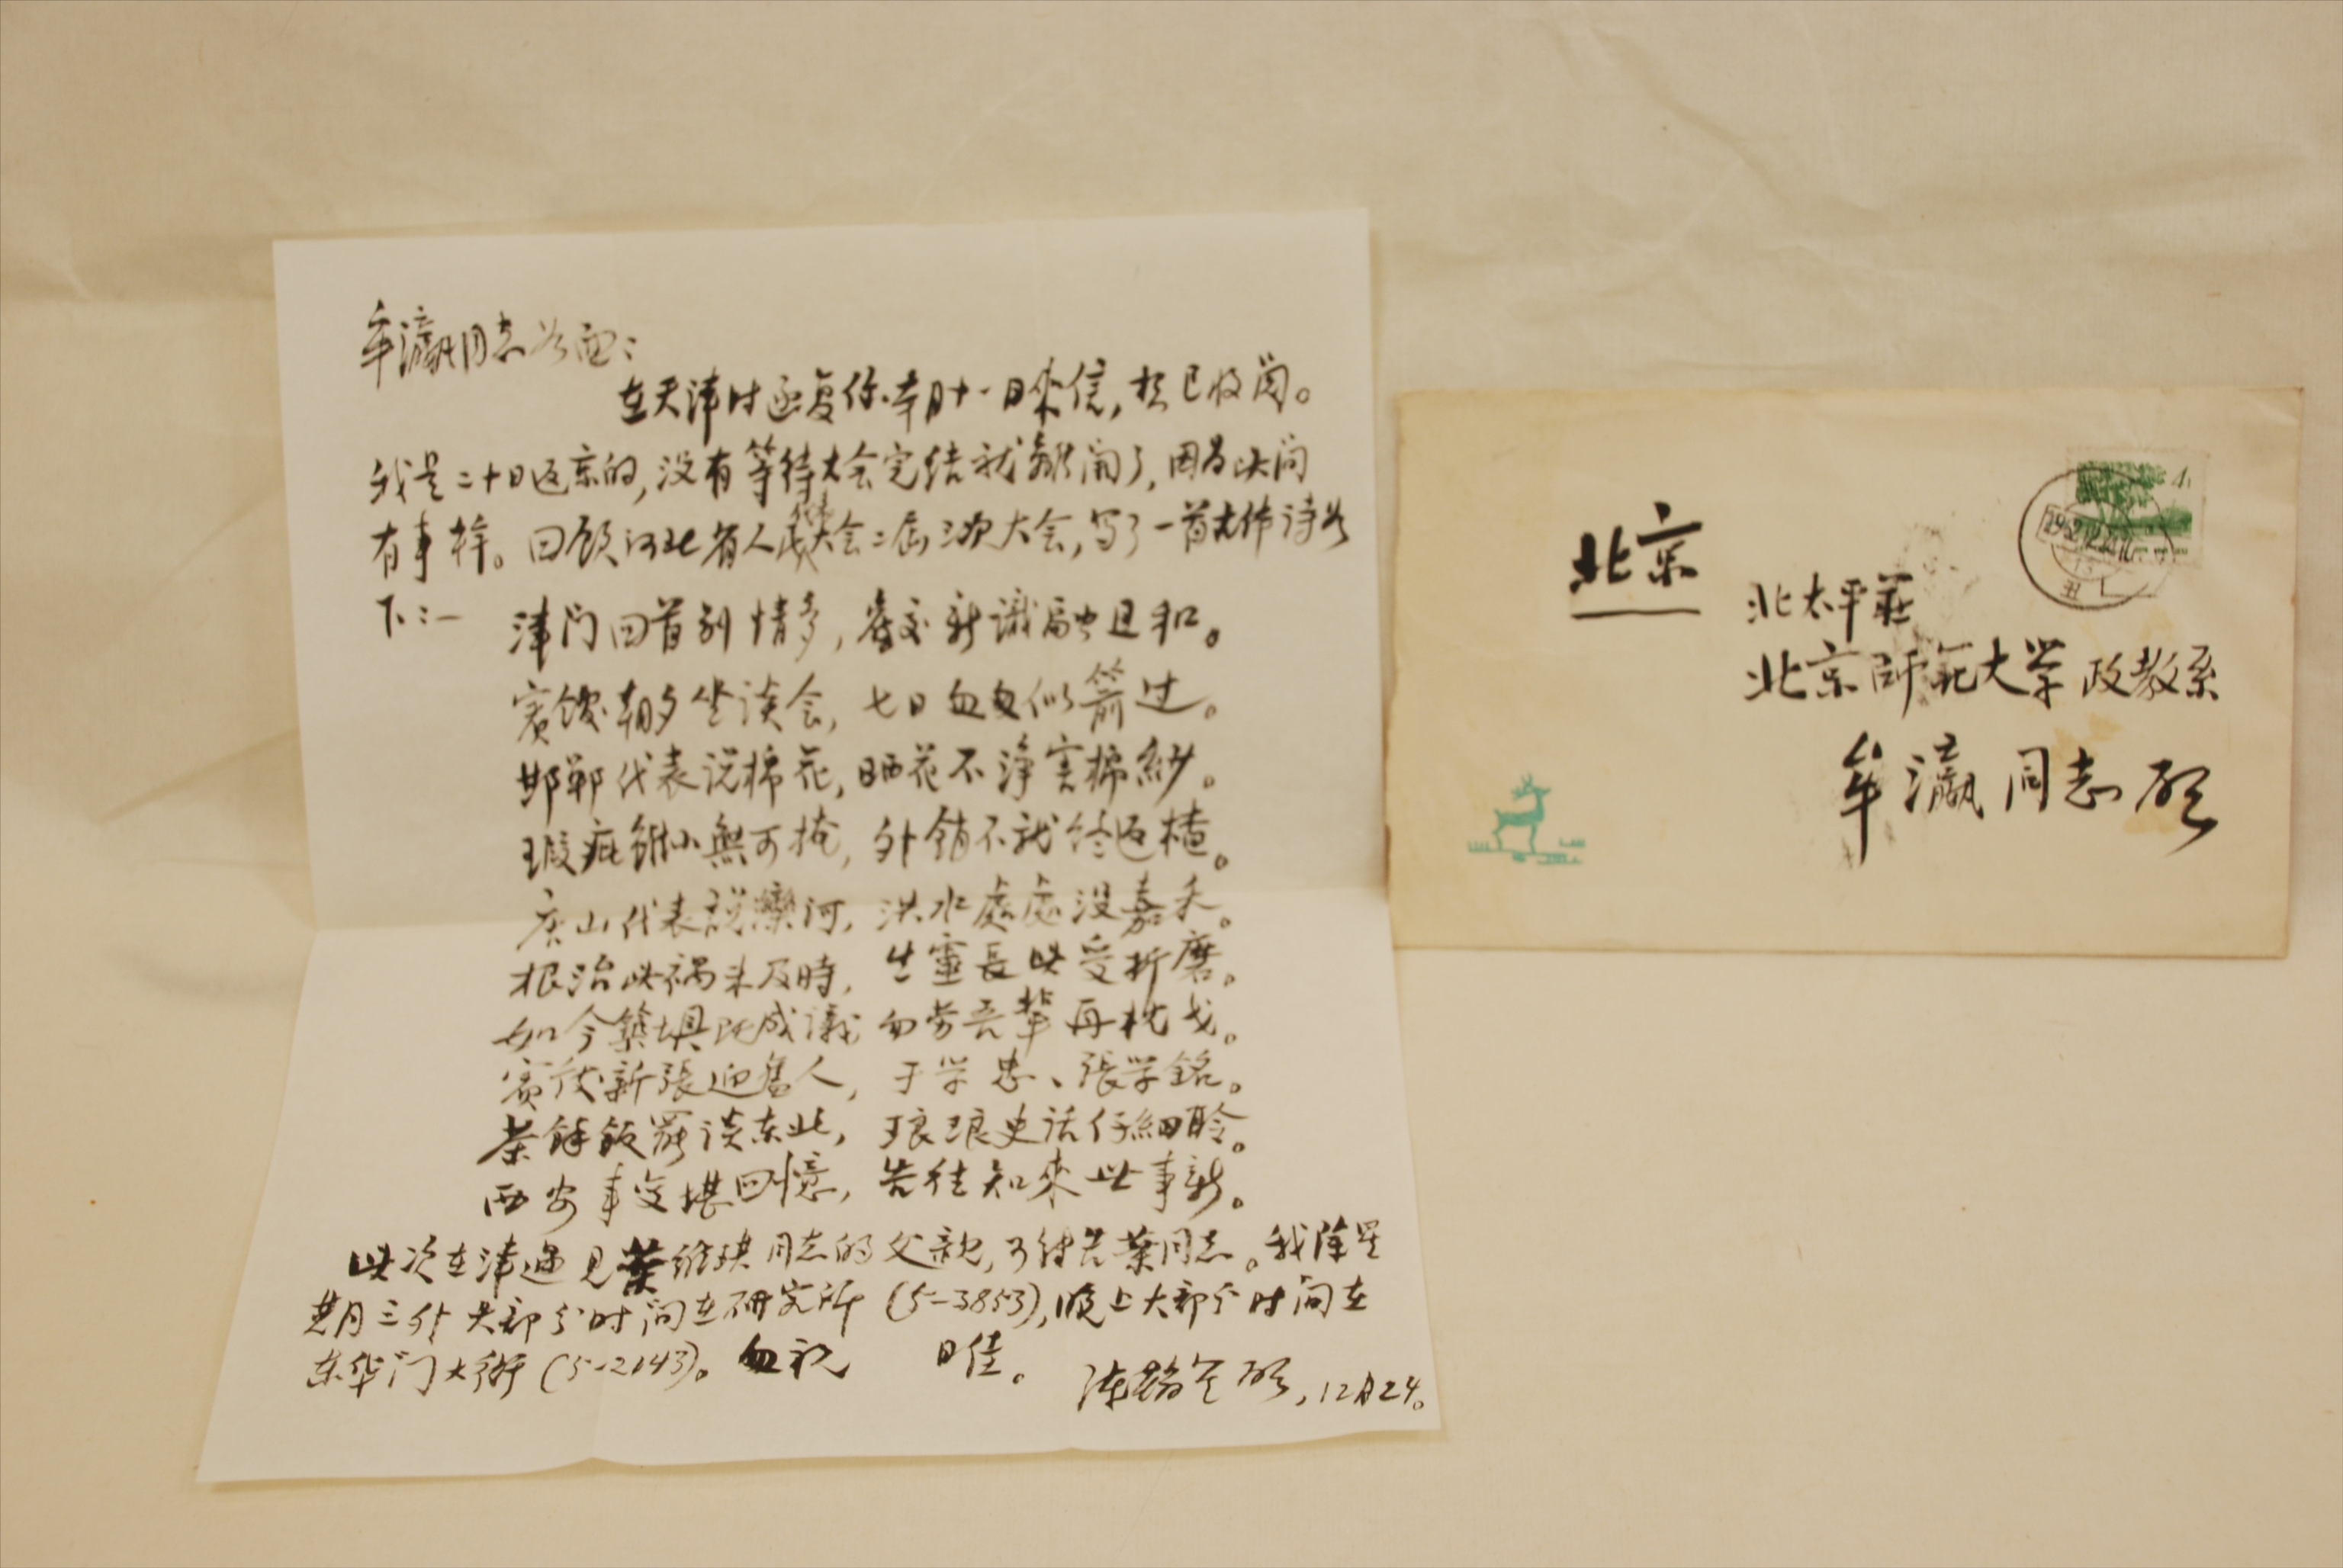 牟瀛同志如面：
在天津时函复你本月十一日來信，想已收阅。
我是二十日返京的，没有等待大会完结就離開了，因為此间
有事様。回顾河北省人民代表大会二届三次大会，写了一首古体诗如
下：—
津门回首别情多，旧交新識融且和。
賓館朝夕坐谈会，七日匆匆似箭过。
邯郸代表说棉花，晒花不淨害棉紗。
瑕疵雖小無可掩，外銷不就终返楂。
唐山代表説灤河，洪水處處没嘉禾。
根治此禍未及時，生靈長此受折磨。
如今築壩既成議 勿劳吾輩再枕戈。
賓馆新張迎舊人，于学忠、張学銘。
茶餘飯罷谈东北，琅琅史话仔細聆。
西安事变堪回憶，告往知來此事新。
此次在津遇见葉同志的父親，可转告葉同志。我除星
期三外大部分时间在研究所（5-3853），晚上大部分时间在
东华门大街（5-2143）。匆祝 日佳。
陈翰笙啟，12月24。
北京
北太平莊
北京師範大学政教系
牟瀛同志啟